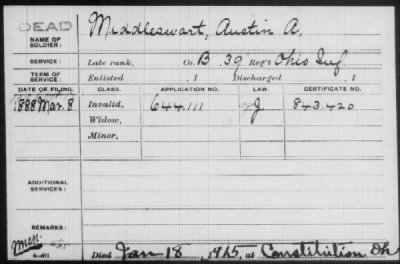 DEAD
NAME OF SOLDIER: Middleswart, Austin A.
SERVICE: Late rank, Co. B, 39 Reg't Ohio Inf
TERM OF SERVICE: Enlisted , 1 Discharged , 1
DATE OF FILING. CLASS. APPLICATION NO. LAW. CERTIFICATE NO.
1888 Mar. 8 Invalid, 644.111 J 843.420
Widow,
Minor,
ADDITIONAL SERVICES:
REMARKS:
Died Jan 18, 1915, at Constitution Oh